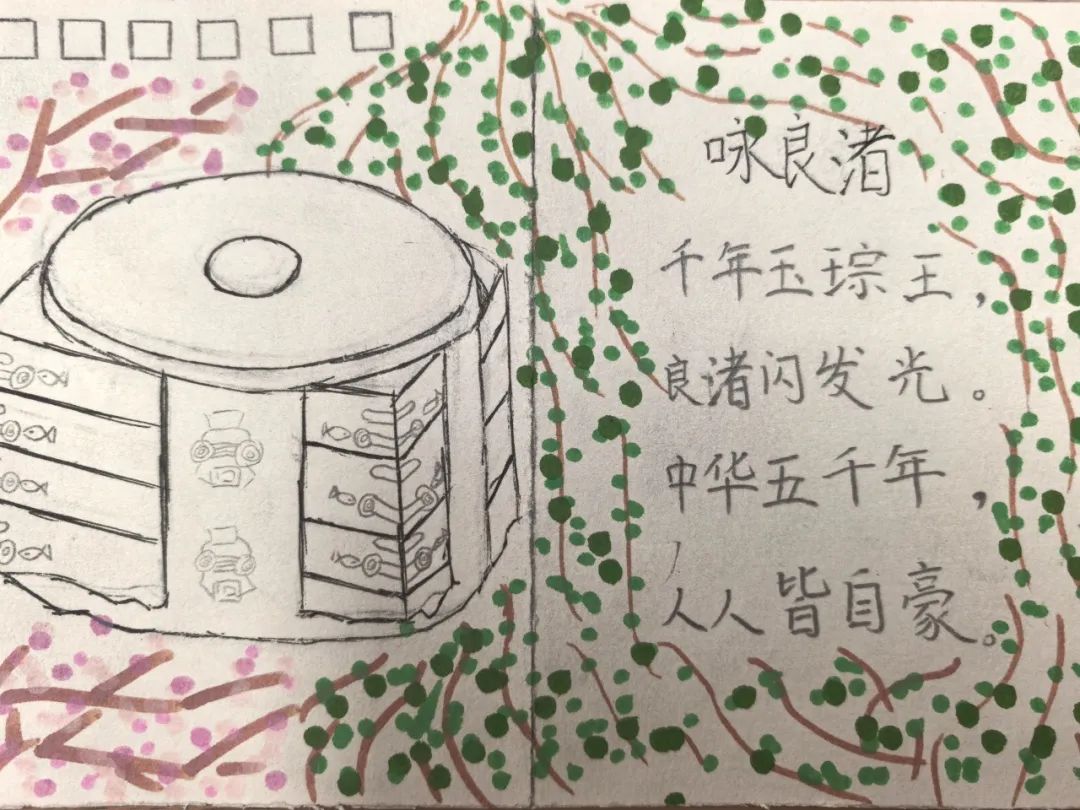 咏良渚
千年玉琮王，
良渚闪发光。
中华五千年，
人人皆自豪。